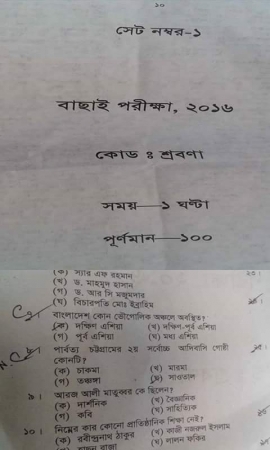 ১০
সেট নম্বর-১
বাছাই পরীক্ষা, ২০১৬
কোড ঃ শ্রবণা
সময়—১ ঘণ্টা
পূর্ণমান—১০০
(ক) স্যার এফ রহমান
(খ) ড. মাহমুদ হাসান
(গ) ড. আর সি মজুমদার
(ঘ) বিচারপতি মোঃ ইব্রাহিম
বাংলাদেশ কোন ভৌগোলিক অঞ্চলে অবস্থিত?
(ক) দক্ষিণ এশিয়া (খ) দক্ষিণ-পূর্ব এশিয়া
(গ) পূর্ব এশিয়া (ঘ) মধ্য এশিয়া
পার্বত্য চট্টগ্রামের ২য় সর্বোচ্চ আদিবাসি গোষ্ঠী
কোনটি?
(ক) চাকমা (খ) মারমা
(গ) তঞ্চঙ্গা (ঘ) সাওতাল
৯। আরজ আলী মাতুব্বর কে ছিলেন?
(ক) দার্শনিক (খ) বৈজ্ঞানিক
(গ) কবি (ঘ) সাহিত্যিক
১০। নিম্নের কার কোনো প্রাতিষ্ঠানিক শিক্ষা নেই?
(ক) রবীন্দ্রনাথ ঠাকুর (খ) কাজী নজরুল ইসলাম
(ঘ) লালন ফকির